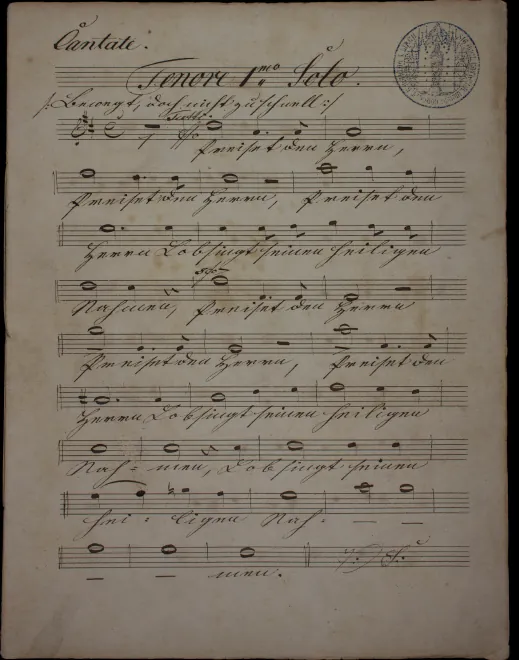 Cantate.
Tenore 1mo Solo.
/: Bewegt, doch nicht zu schnell :/
Tutti.
Preiset den Herrn,
Preiset den Herrn, Preiset den
Herrn Lobsingt seinen heiligen
Nahmen, Preiset den Herrn
Preiset den Herrn, Preiset den
Herrn Lobsingt seinen heiligen
Nah - men, Lobsingt seinen
hei - ligen Nah - — —
— — men.